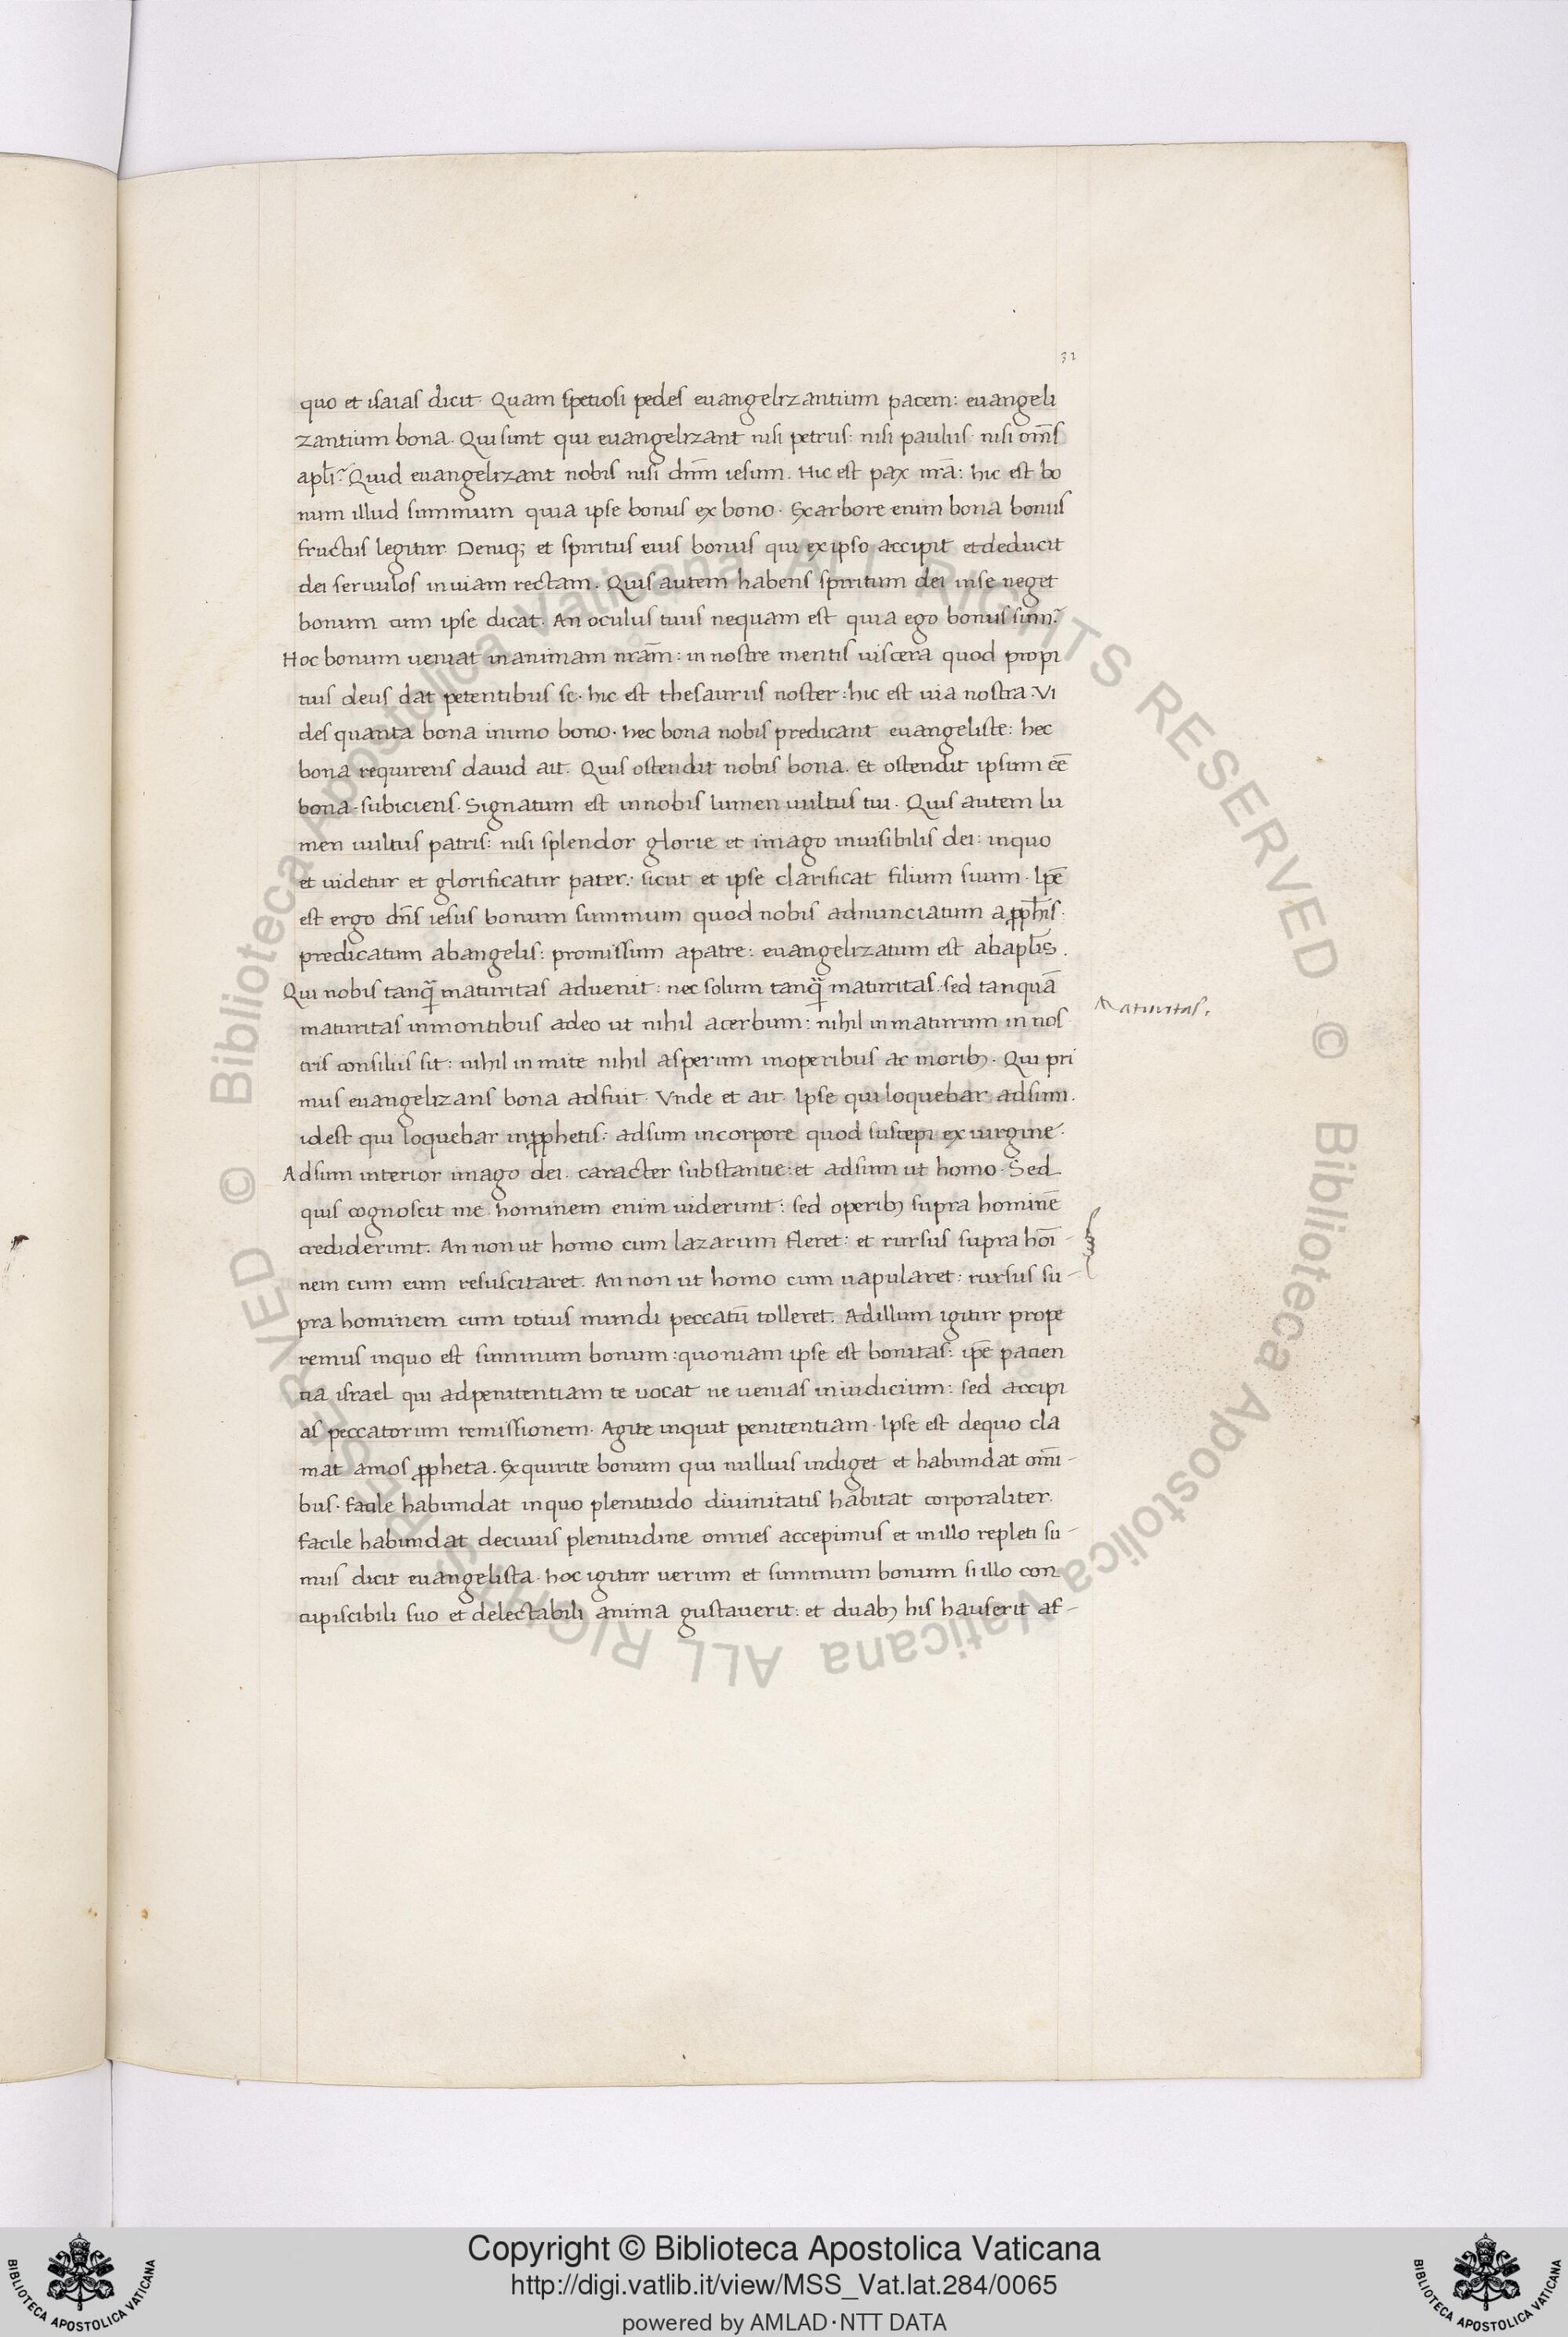 32
quo et isaias dicit. Quam spetiosi pedes euangelizantium pacem: euangeli
zantium bona. Qui sunt qui euangelizant nisi petrus: nisi paulus. nisi om̄s
apl̄i? Quid euangelizant nobis nisi dn̄m iesum. Hic est pax nr̄a: hic est bo
num illud summum quia ipse bonus ex bono. Ex arbore enim bona bonus
fructus legitur. Deniq; et spiritus eius bonus qui ex ipso accipit et deducit
dei seruulos in uiam rectam. Quis autem habens spiritum dei in se neget
bonum cum ipse dicat. An oculus tuus nequam est quia ego bonus sum?
Hoc bonum ueniat in animam nr̄am: in nostre mentis uiscera quod propi
tius deus dat petentibus se. hic est thesaurus noster: hic est uia nostra. Vi
des quanta bona in uno bono. hec bona nobis predicant euangeliste: hec
bona requirens dauid ait. Quis ostendit nobis bona. Et ostendit ipsum eē
bona subiciens. Signatum est in nobis lumen uultus tui. Quis autem lu
men uultus patris: nisi splendor glorie et imago inuisibilis dei: in quo
et uidetur et glorificatur pater: sicut et ipse clarificat filium suum. Ipē
est ergo dn̄s iesus bonum summum quod nobis adnunciatum a ꝓph̄is.
predicatum ab angelis: promissum a patre: euangelizatum est ab apl̄is.
Qui nobis tanq̄ maturitas aduenit: nec solum tanq̄ maturitas. sed tanquā
maturitas in montibus adeo ut nihil acerbum: nihil in maturum in nos
tris consiliis sit: nihil in mite nihil asperum in operibus ac morib;. Qui pri
mus euangelizans bona adfuit. Vnde et ait. Ipse qui loquebar adsum.
idest qui loquebar in ꝓphetis: adsum in corpore quod suscepi ex uirgine.
Adsum interior imago dei. caracter substantie: et adsum ut homo. Sed
quis cognoscit me. hominem enim uiderunt: sed operib; supra hominē
crediderunt. An non ut homo cum lazarum fleret: et rursus supra hoī-
nem cum eum resuscitaret. An non ut homo cum uapularet: rursus su-
pra hominem cum totius mundi peccatū tolleret. Ad illum igitur prope
remus in quo est summum bonum: quoniam ipse est bonitas: ipē patien
tia israel qui ad penitentiam te uocat ne uenias in iudicium: sed accipi
as peccatorum remissionem. Agite inquit penitentiam. Ipse est de quo cla
mat amos ꝓpheta. Exquirite bonum qui nullius indiget et habundat om̄i-
bus. facile habundat in quo plenitudo diuinitatis habitat corporaliter.
facile habundat de cuius plenitudine omnes accepimus et in illo repleti su-
mus dicit euangelista. hoc igitur uerum et summum bonum si illo con
cupiscibili suo et delectabili anima gustauerit: et duab; his hauserit af-
Maturitas.
Copyright © Biblioteca Apostolica Vaticana
http://digi.vatlib.it/view/MSS_Vat.lat.284/0065
powered by AMLAD·NTT DATA
BIBLIOTECA APOSTOLICA VATICANA
BIBLIOTECA APOSTOLICA VATICANA
© Biblioteca Apostolica Vaticana ALL RIGHTS RESERVED © Biblioteca Apostolica Vaticana ALL RIGHTS RESERVED